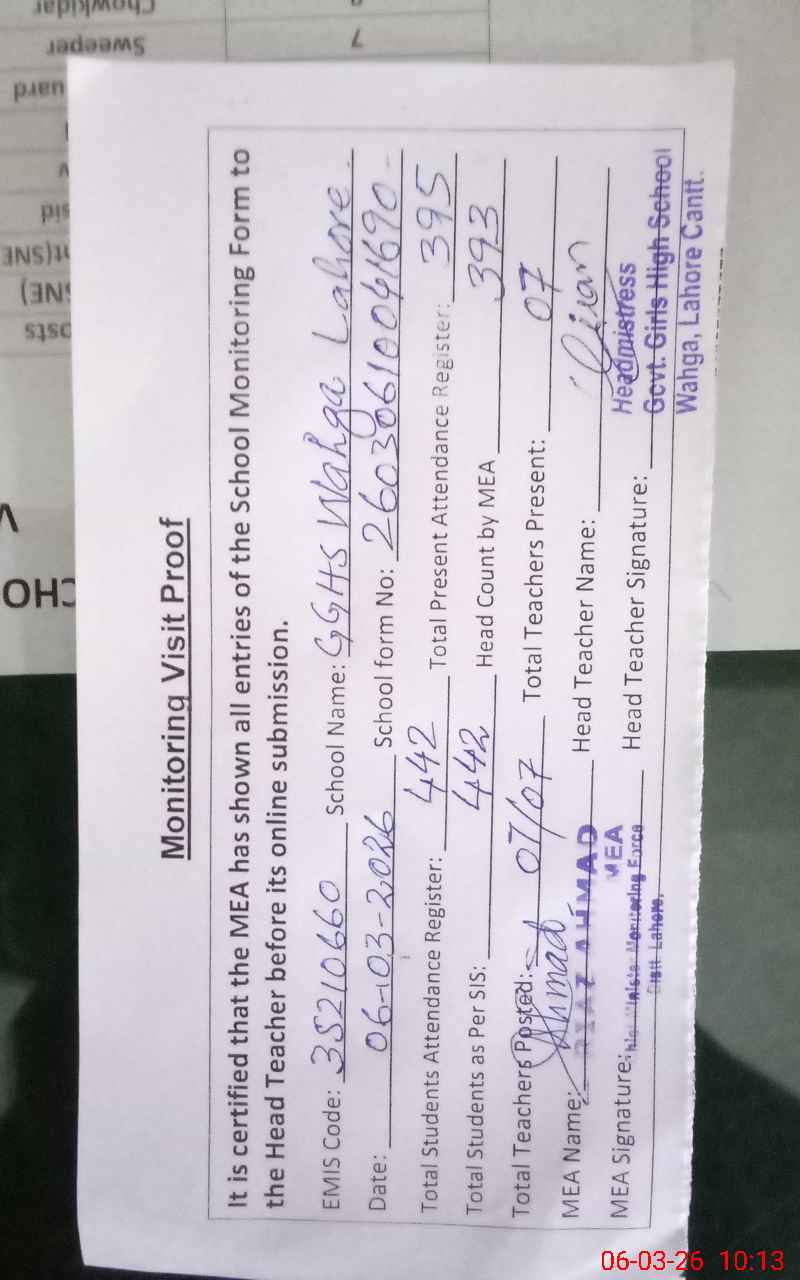 Monitoring Visit Proof
It is certified that the MEA has shown all entries of the School Monitoring Form to
the Head Teacher before its online submission.
EMIS Code: 35210660 School Name: GGHS Wahga Lahore.
Date: 06-03-2026 School form No: 26030610041690
Total Students Attendance Register: 442 Total Present Attendance Register: 395
Total Students as Per SIS: 442 Head Count by MEA 393
Total Teachers Posted: 07/07 Total Teachers Present: 07
MEA Name: Ahmad AHMAD Head Teacher Name:
MEA
MEA Signature: Monitoring Force Head Teacher Signature:
Distt Lahore.
Headmistress
Govt. Girls High School
Wahga, Lahore Cantt.
Chowkidar
Sweeper 7
uard
osts
CHO
06-03-26 10:13